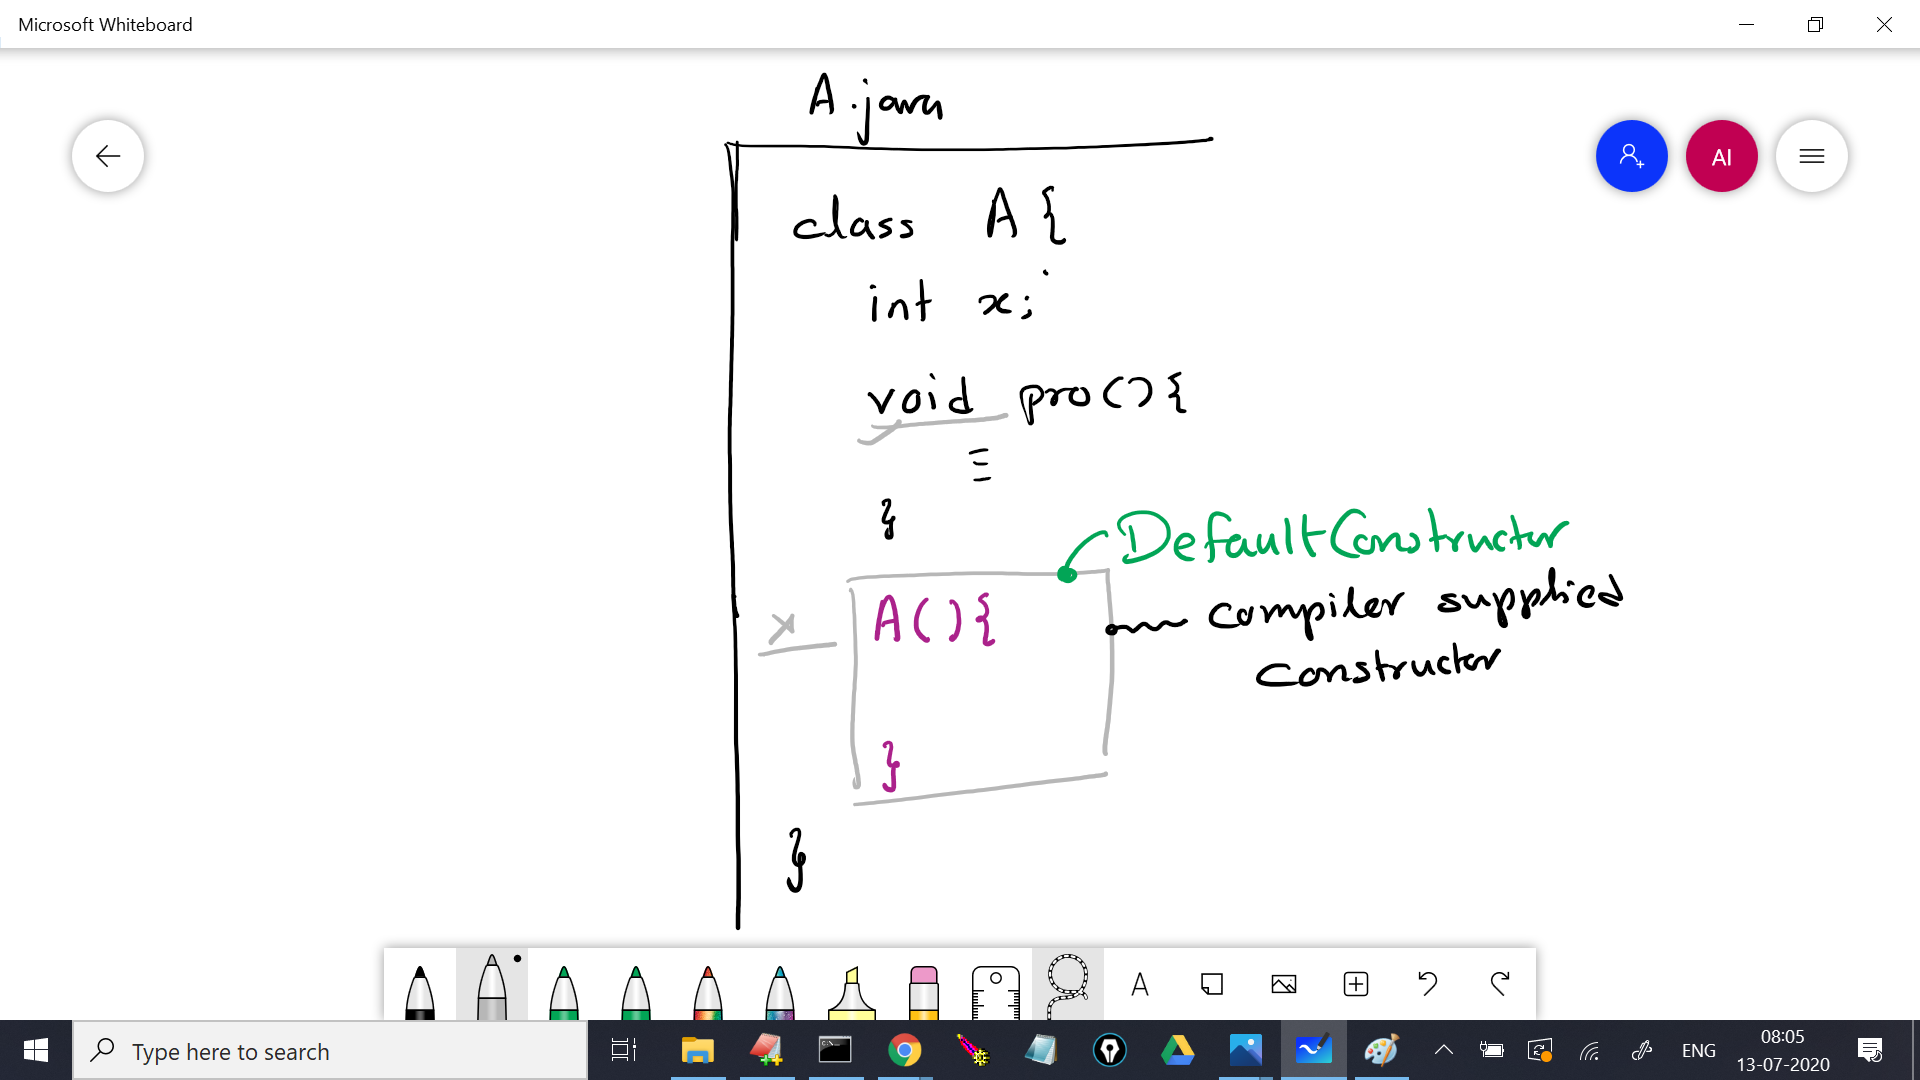 Microsoft Whiteboard
A.java
AI
class A {
int x;
void pro() {
}
Default Constructor
A() {
compiler supplied
constructor
}
}
A
Type here to search
ENG
08:05
13-07-2020